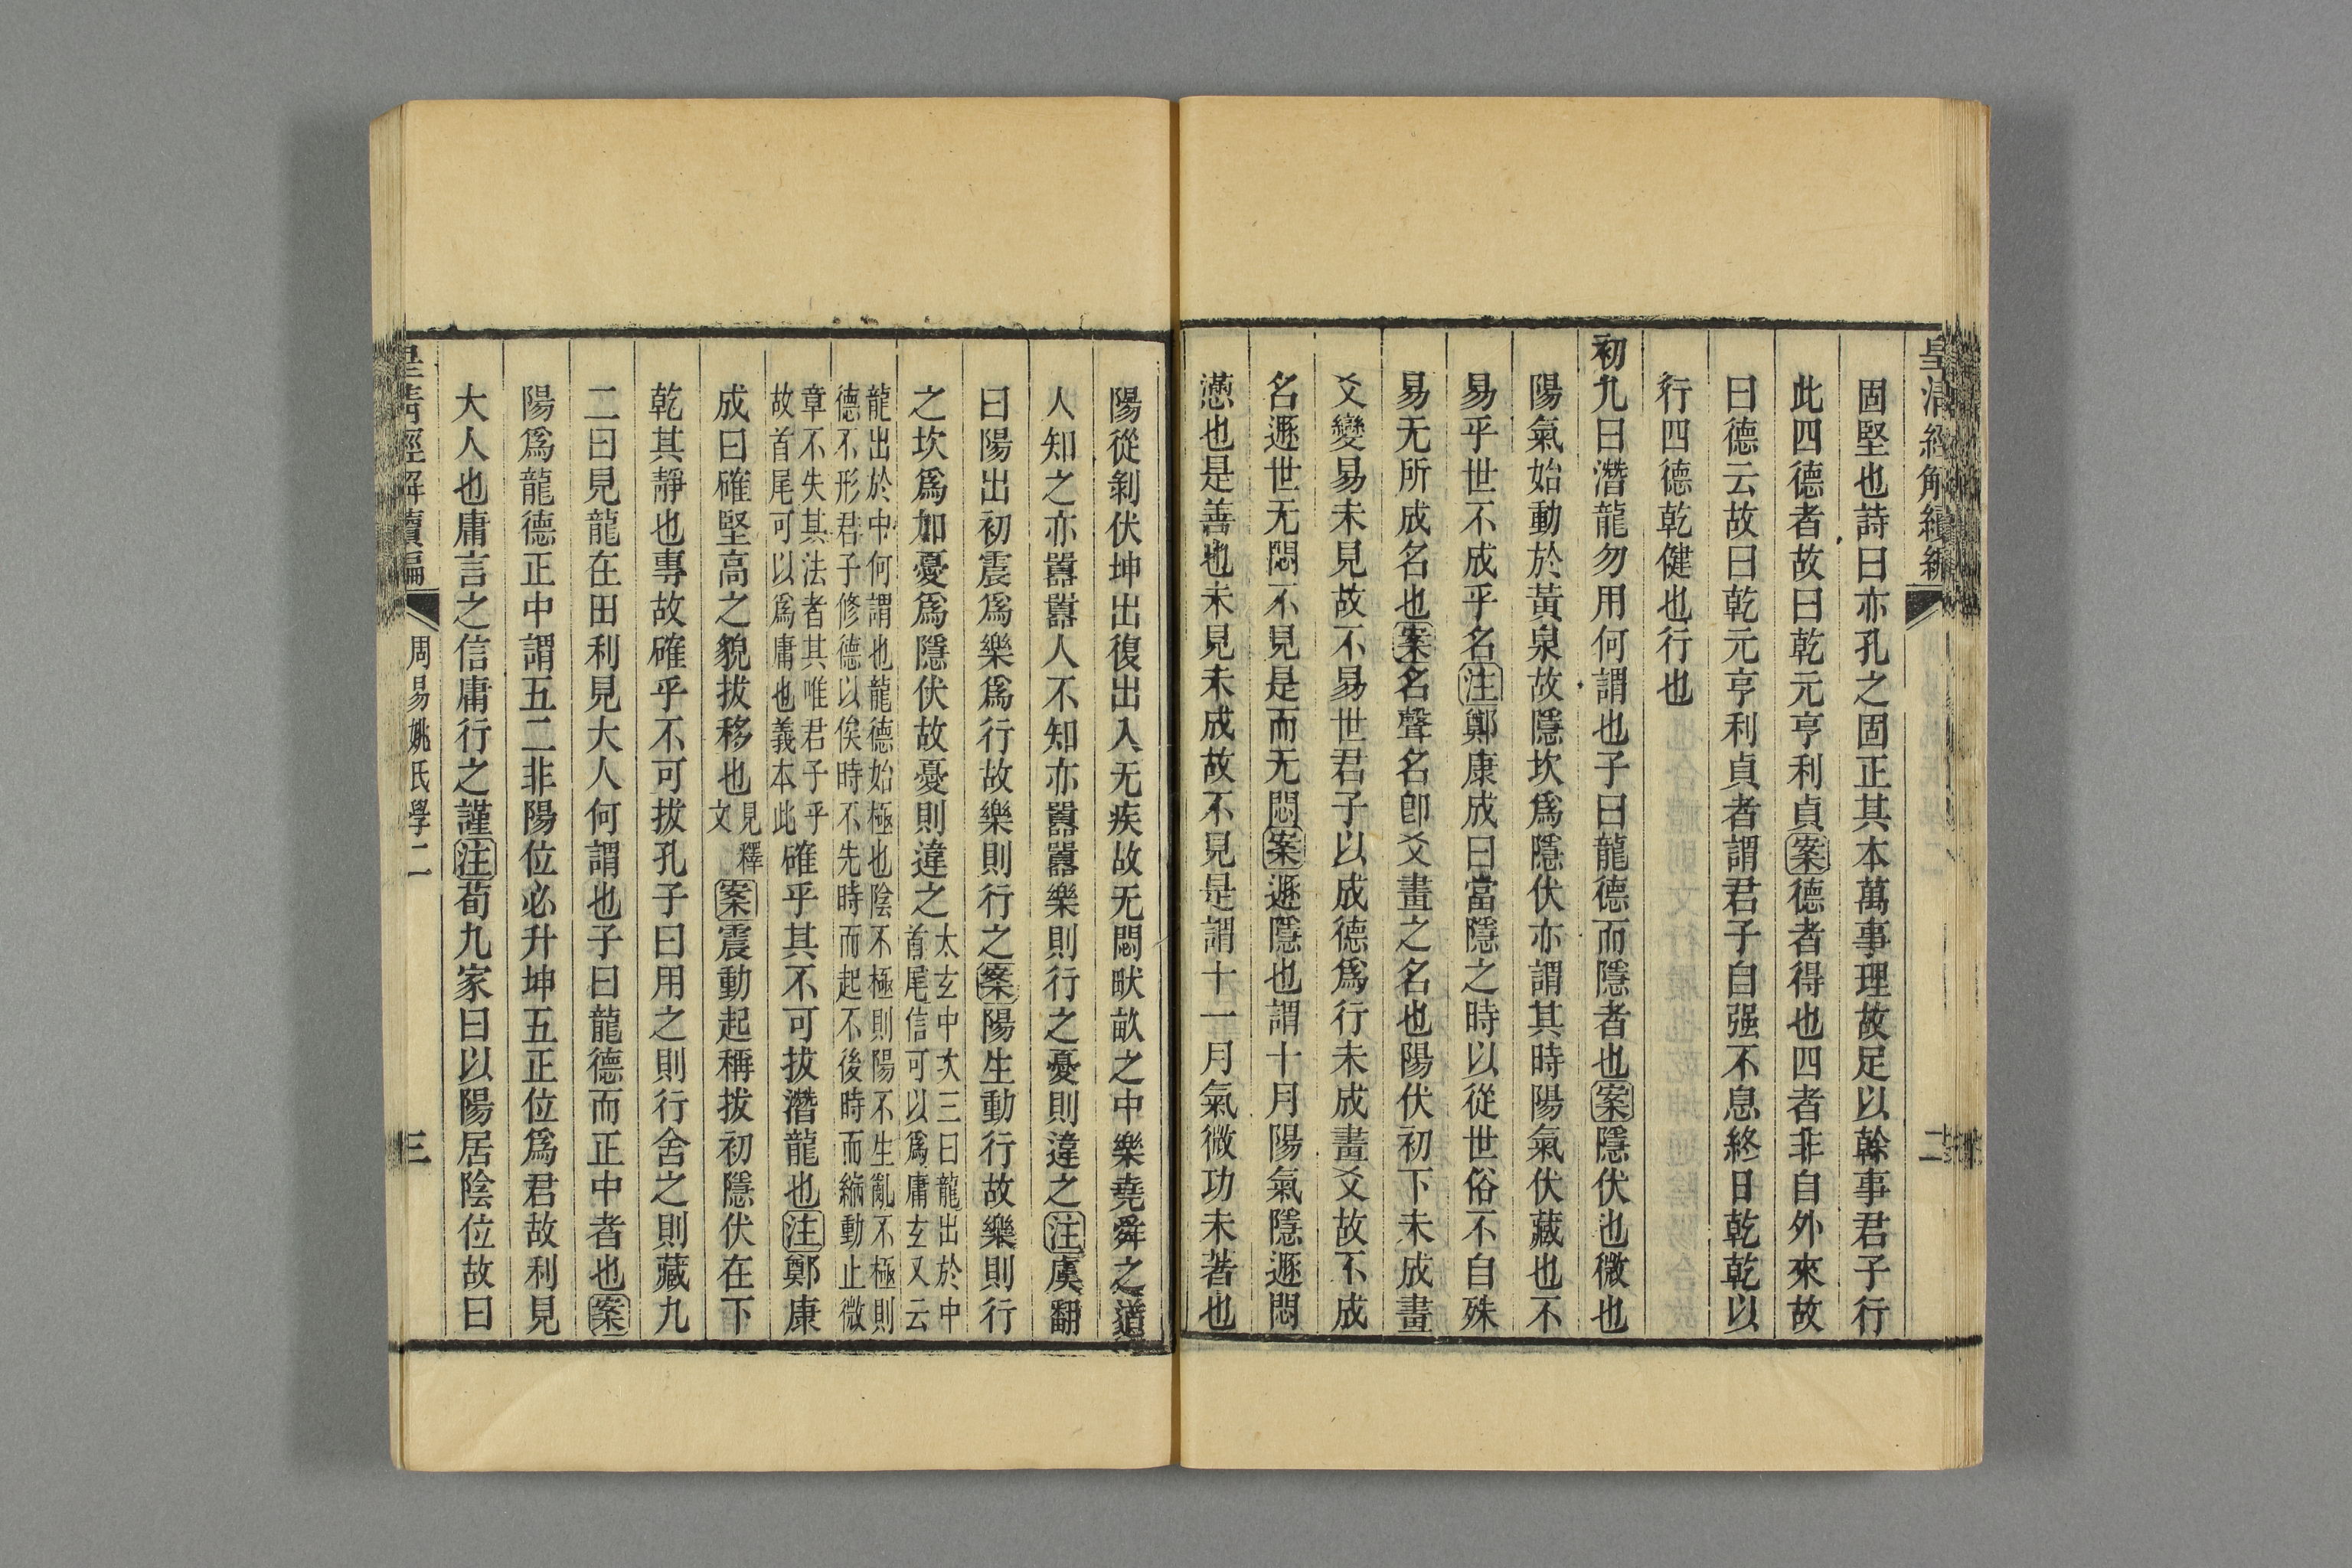 皇清經解續編
二
固堅也詩曰亦孔之固正其本萬事理故足以幹事君子行
此四德者故曰乾元亨利貞案德者得也四者非自外來故
曰德云故曰乾元亨利貞者謂君子自强不息終日乾乾以
行四德乾健也行也
初九曰潛龍勿用何謂也子曰龍德而隱者也案隱伏也微也
陽氣始動於黃泉故隱坎爲隱伏亦謂其時陽氣伏藏也不
易乎世不成乎名注鄭康成曰當隱之時以從世俗不自殊
易无所成名也案名聲名卽爻畫之名也陽伏初下未成畫
爻變易未見故不易世君子以成德爲行未成畫爻故不成
名遯世无悶不見是而无悶案遯隱也謂十月陽氣隱遯悶
懣也是善也未見未成故不見是謂十一月氣微功未著也
陽從剝伏坤出復出入无疾故无悶畎畝之中樂堯舜之道
人知之亦嚻嚻人不知亦嚻嚻樂則行之憂則違之注虞翻
曰陽出初震爲樂爲行故樂則行之案陽生動行故樂則行
之坎爲加憂爲隱伏故憂則違之太玄中次三曰龍出於中
首尾信可以爲庸玄又云
龍出於中何謂也龍德始極也陰不極則陽不生亂不極則
德不形君子修德以俟時不先時而起不後時而縮動止微
章不失其法者其唯君子乎
故首尾可以爲庸也義本此確乎其不可拔潛龍也注鄭康
成曰確堅高之貌拔移也見釋
文案震動起稱拔初隱伏在下
乾其靜也專故確乎不可拔孔子曰用之則行舍之則藏九
二曰見龍在田利見大人何謂也子曰龍德而正中者也案
陽爲龍德正中謂五二非陽位必升坤五正位爲君故利見
大人也庸言之信庸行之謹注荀九家曰以陽居陰位故曰
皇清經解續編
周易姚氏學二
三